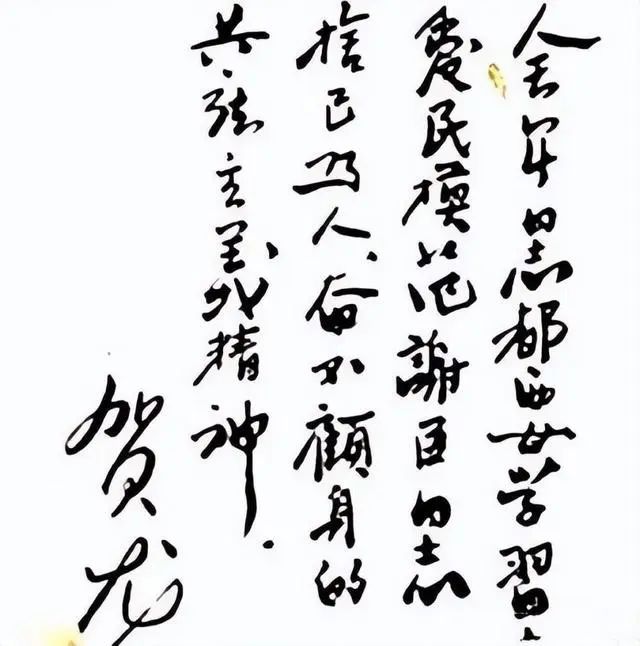 全军同志都要学習
爱民模范謝臣同志
捨己为人、奋不顧身的
共产主义精神.
贺龙